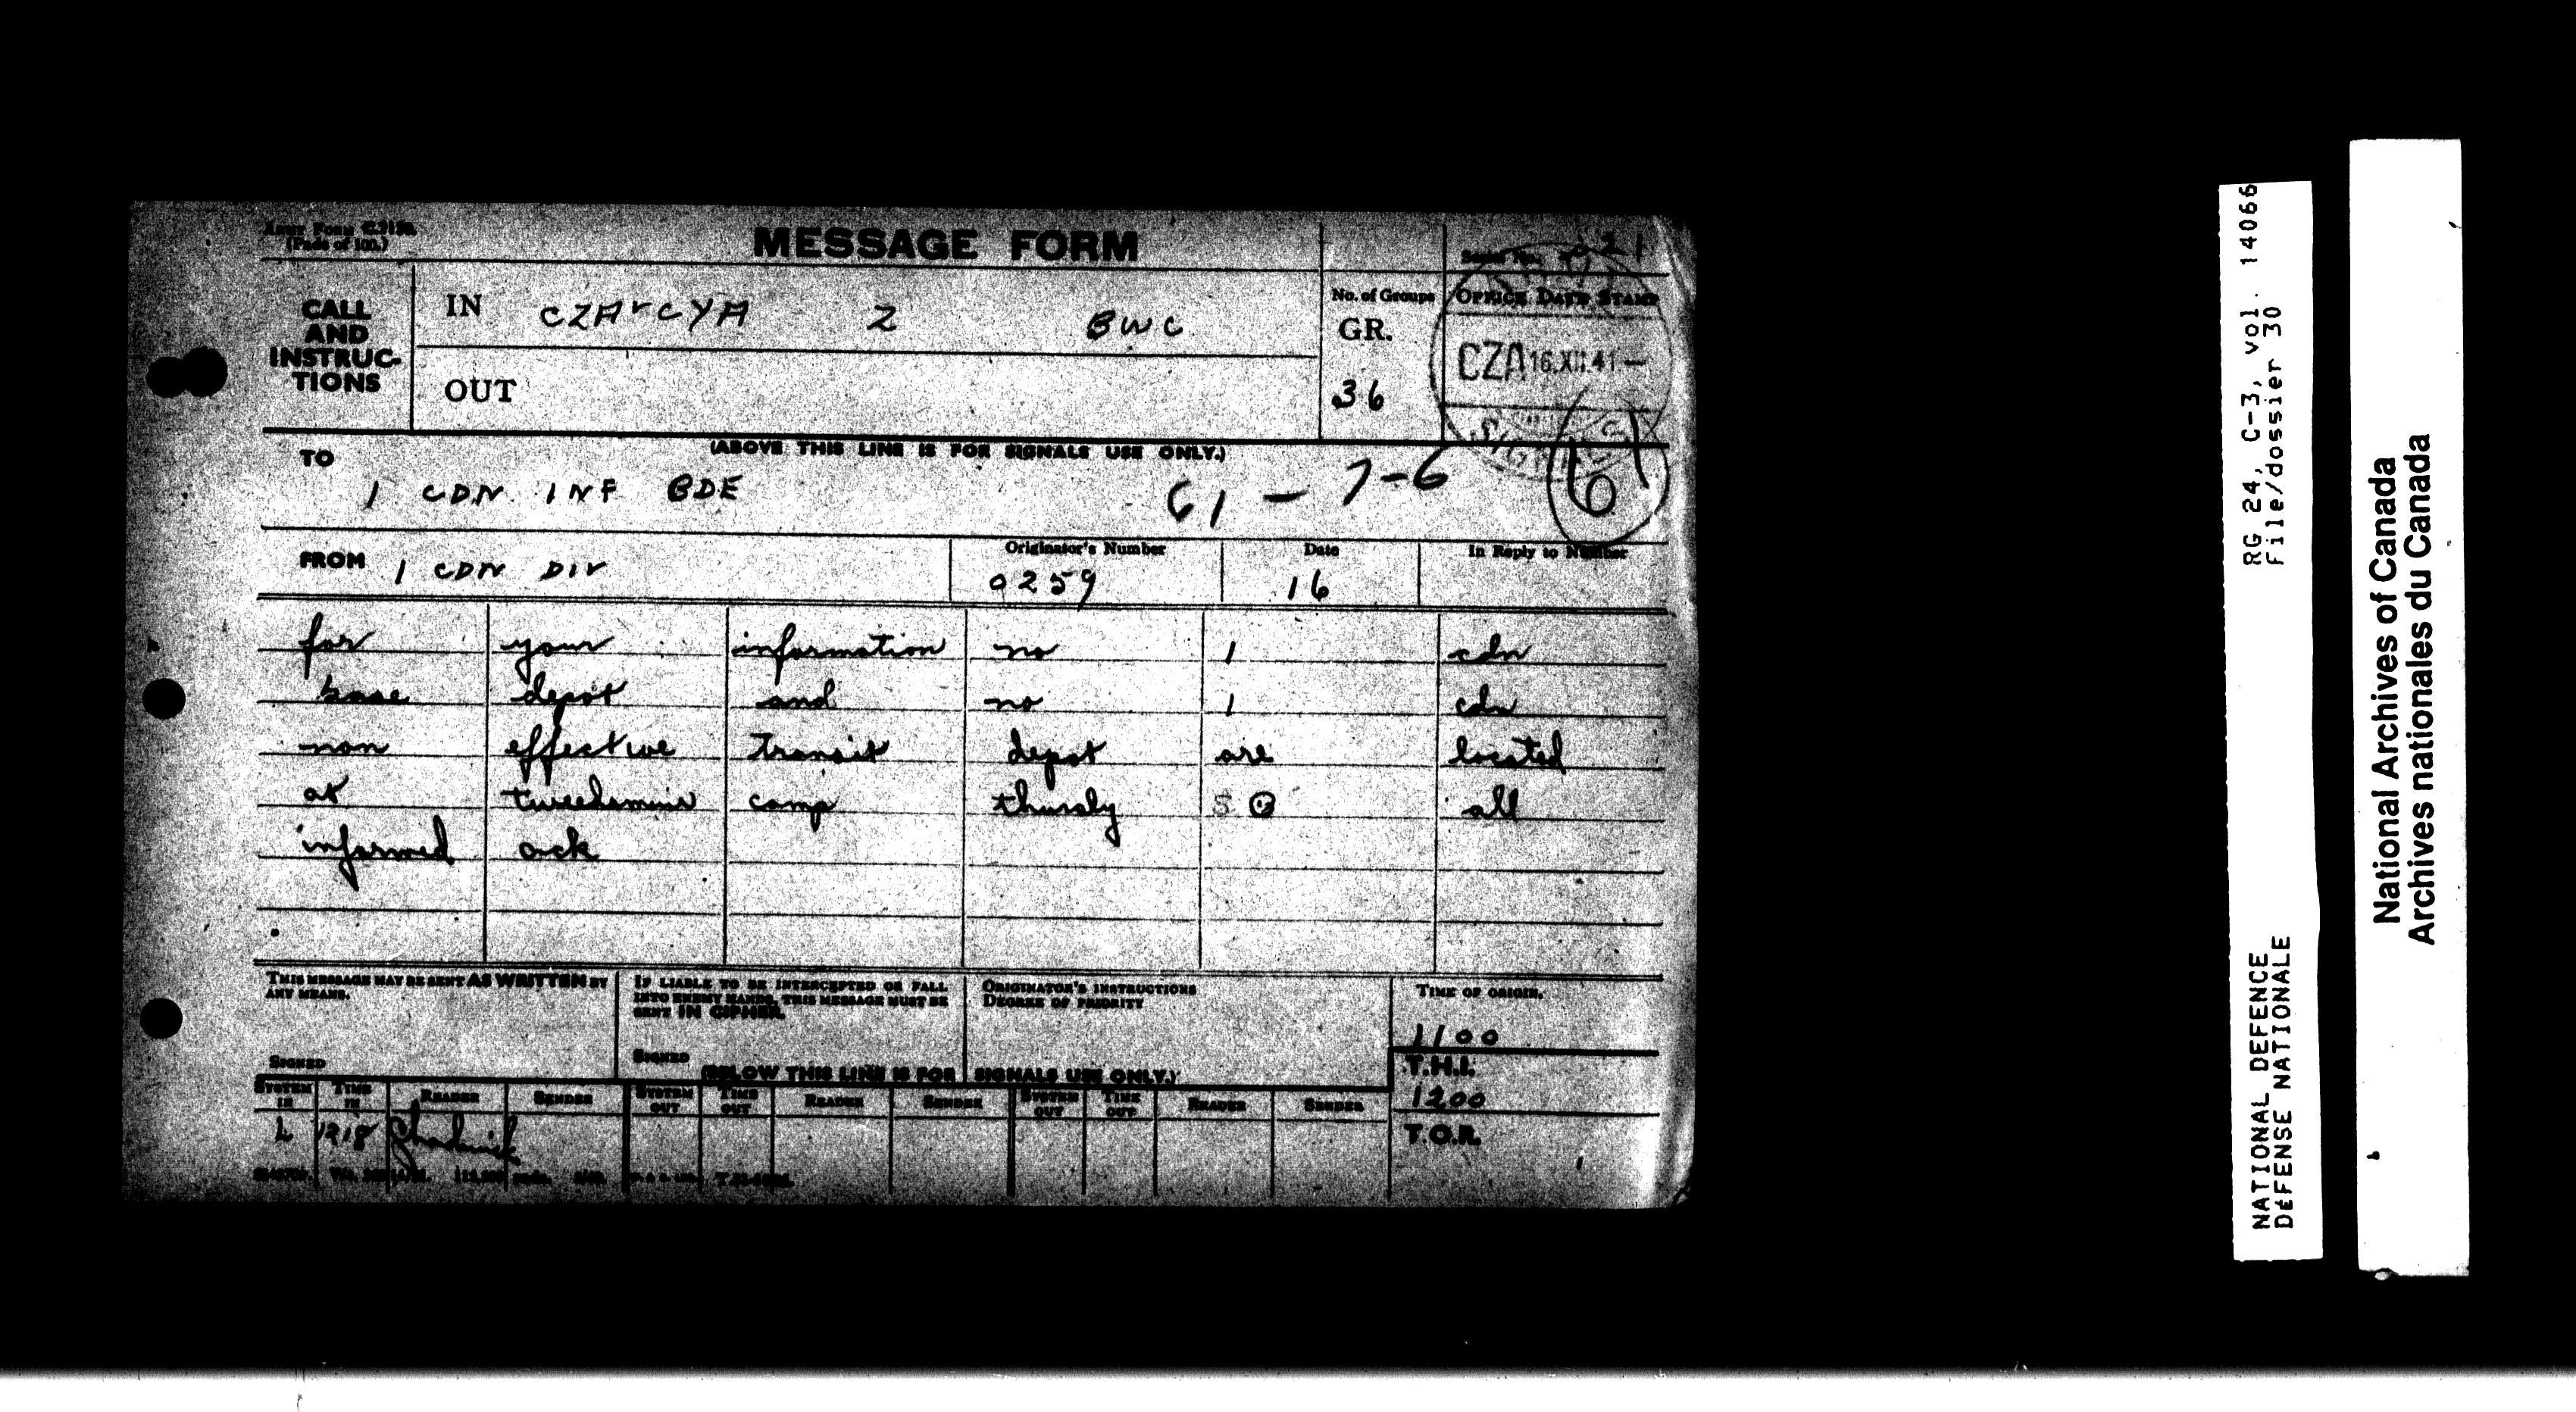 ARMY FORM C.2128.
(Pads of 100.)
MESSAGE FORM
Serial No. 21
CALL AND INSTRUC-TIONS
IN CZA V CYA Z BWC
OUT
No. of Groups
GR.
36
OFFICE DATE STAMP
CZA 16.XII.41 –
SIGNALS
(ABOVE THIS LINE IS FOR SIGNALS USE ONLY.)
TO
1 CDN INF BDE
61 – 7-6
FROM 1 CDN DIV
Originator's Number
0259
Date
16
In Reply to Number
for your information no 1 cdn
base depot and no 1 cdn
non effective transit depot are located
at camp thursly S all
informed ack
THIS MESSAGE MAY BE SENT AS WRITTEN BY ANY MEANS.
SIGNED
IF LIABLE TO BE INTERCEPTED OR FALL INTO ENEMY HANDS, THIS MESSAGE MUST BE SENT IN CIPHER.
SIGNED
ORIGINATOR'S INSTRUCTIONS
DEGREE OF PRIORITY
TIME OF ORIGIN.
1100
T.H.I.
1200
T.O.R.
(BELOW THIS LINE IS FOR SIGNALS USE ONLY.)
SYSTEM IN TIME IN READER SENDER SYSTEM OUT TIME OUT READER SENDER SYSTEM OUT TIME OUT READER SENDER
L 1218 Chadwick
RG 24, C-3, vol. 14066
File/dossier 30
NATIONAL DEFENCE
DÉFENSE NATIONALE
National Archives of Canada
Archives nationales du Canada